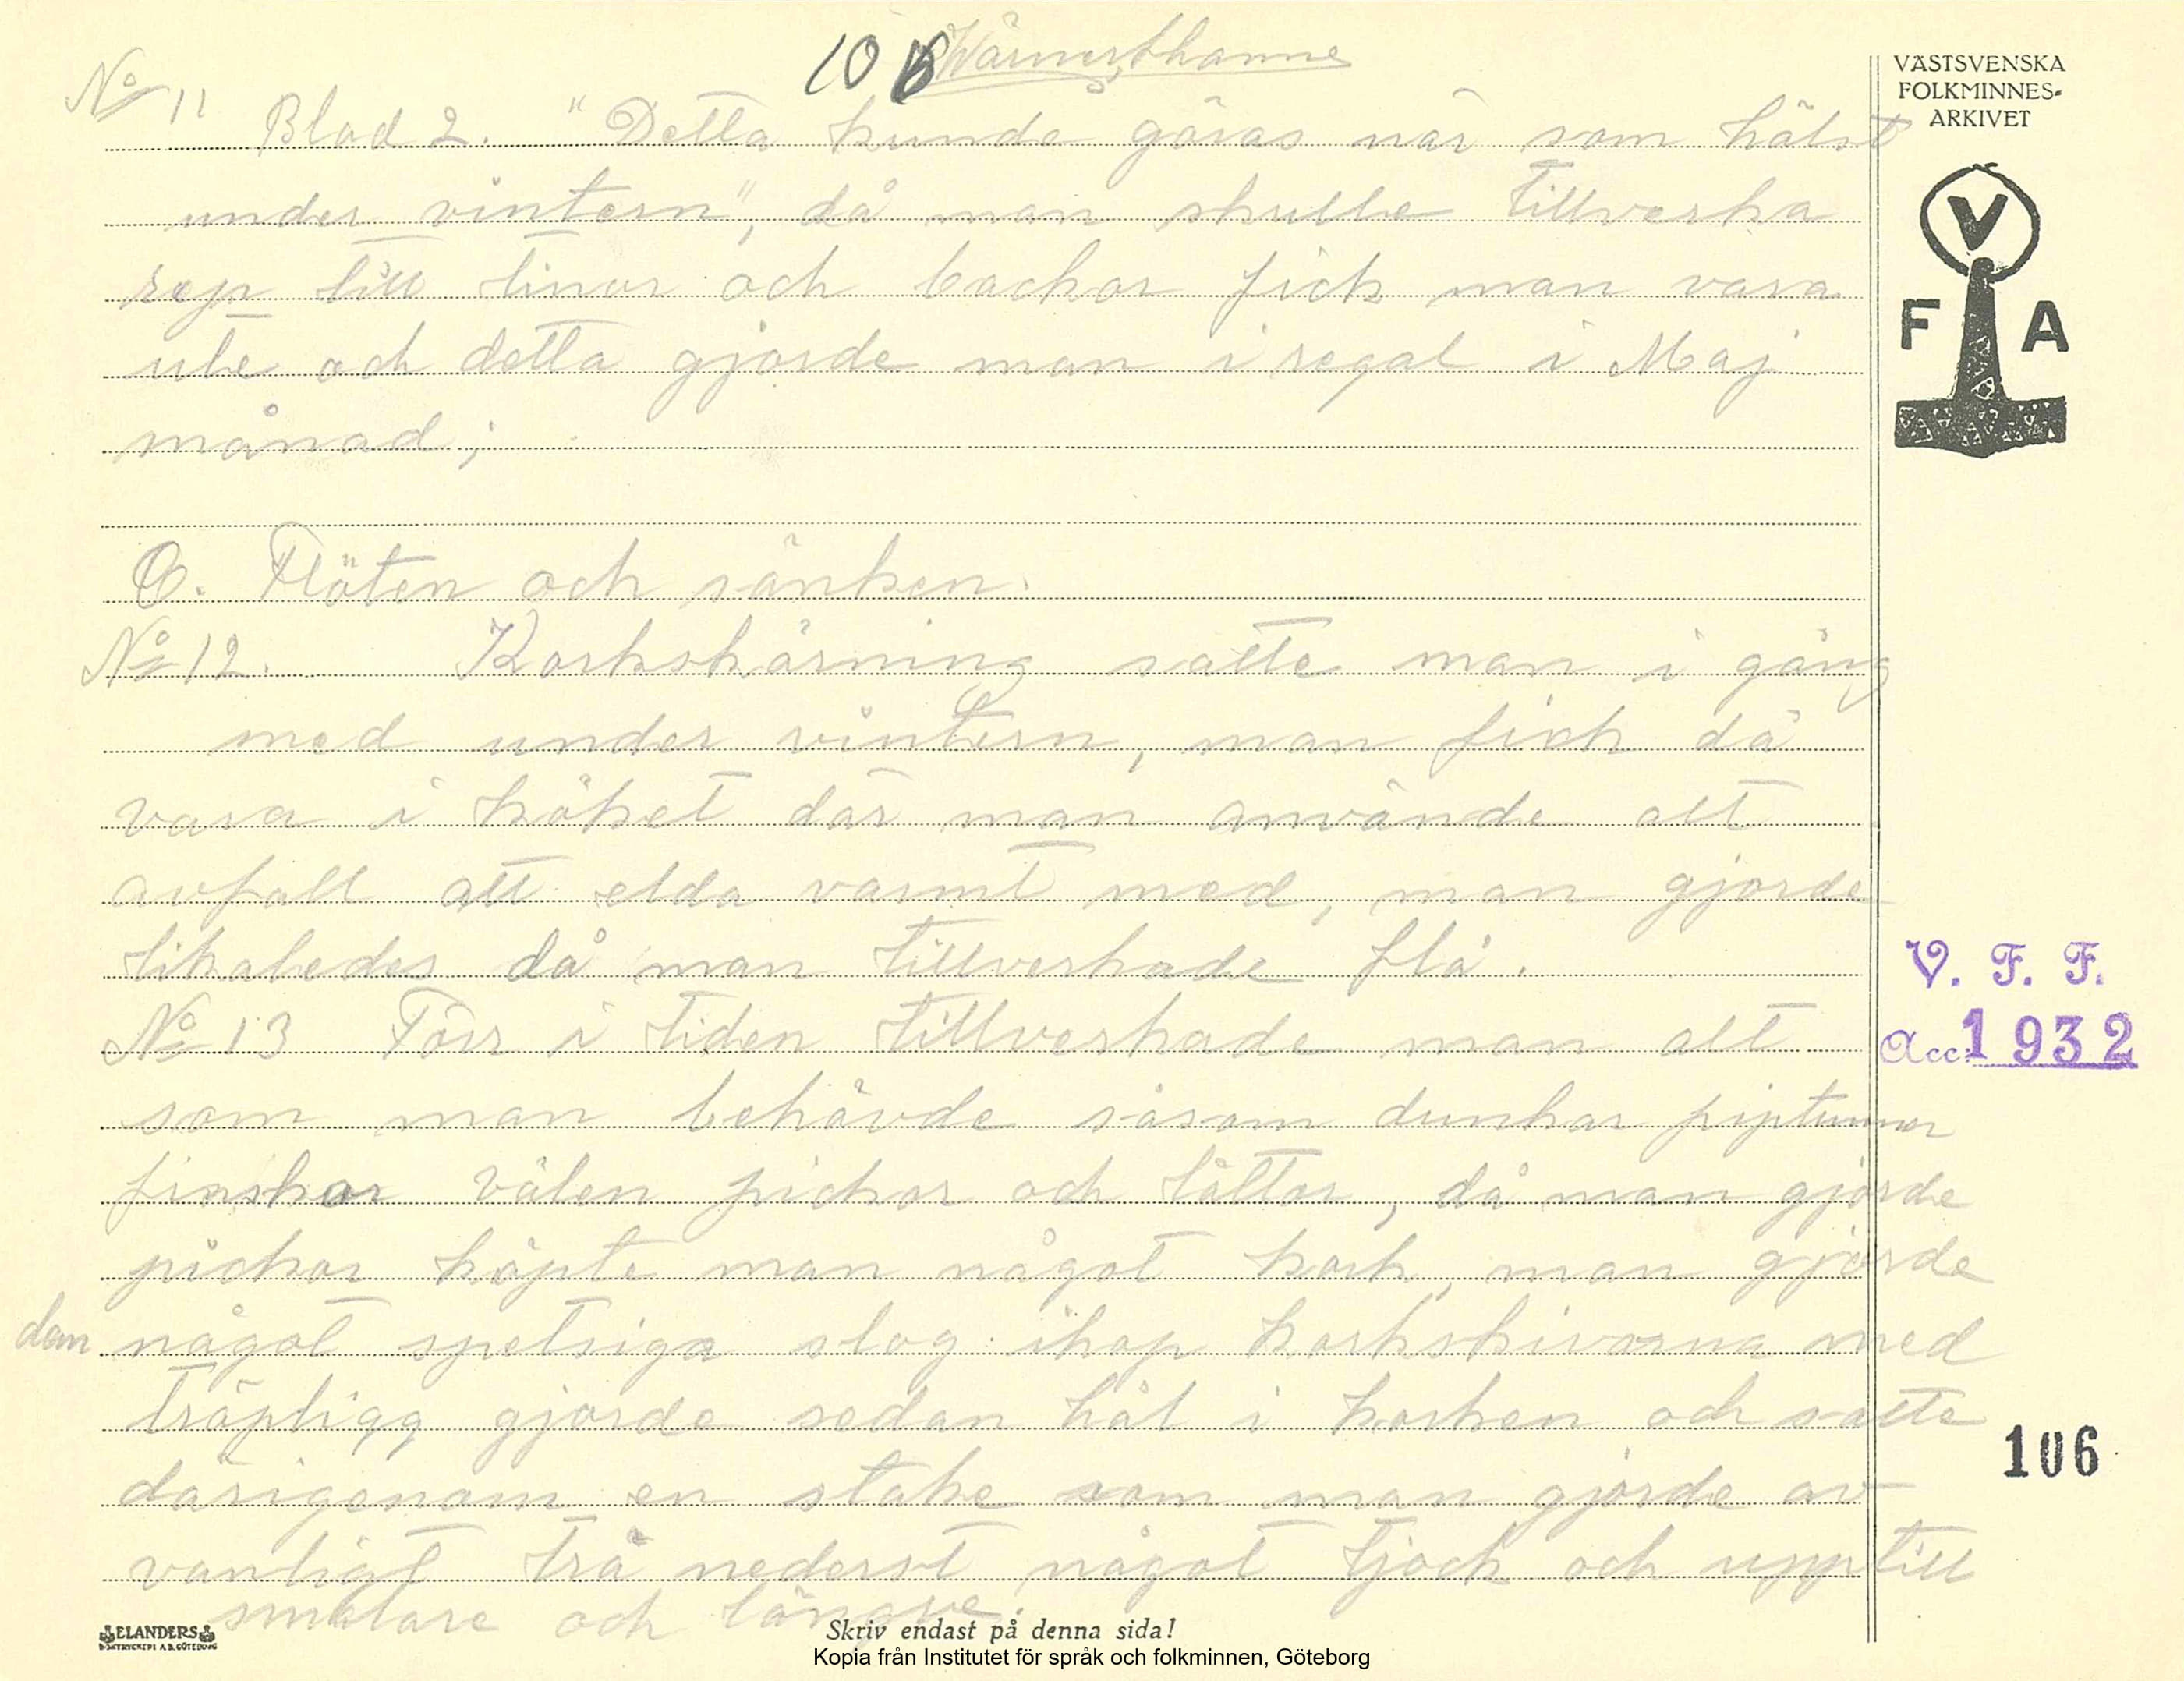 10 B Wärmsthamne
VÄSTSVENSKA
FOLKMINNES-
ARKIVET
V
F A
No 11 Blad 2. "Detta kunde göras när som hälst
under vintern", då man skulle tillverka
rep till linor och backor fick man vara
ute och detta gjorde man i regel i Maj
månad;
C. Flöten och sänken.
No 12. Korkskärning satte man i gång
med under vintern, man fick då
vara i köket där man använde alt
avfall att elda varmt med, man gjorde
likaledes då man tillverkade flå.
No 13 Förr i tiden tillverkade man alt
som man behövde såsom dunkar piptunnor
finskor välen pickor och tåltor, då man gjorde
pickor köpte man något kork, man gjorde
dem något spetsiga slog ihop korkskivorna med
träpligg gjorde sedan hål i korken och satte
därigenom en stake som man gjorde av
vanligt trä nederst något tjock och upptill
smalare och längre.
V. F. F.
Acc. 1932
106
ELANDERS
BOKTRYCKERI A.B. GÖTEBORG
Skriv endast på denna sida!
Kopia från Institutet för språk och folkminnen, Göteborg